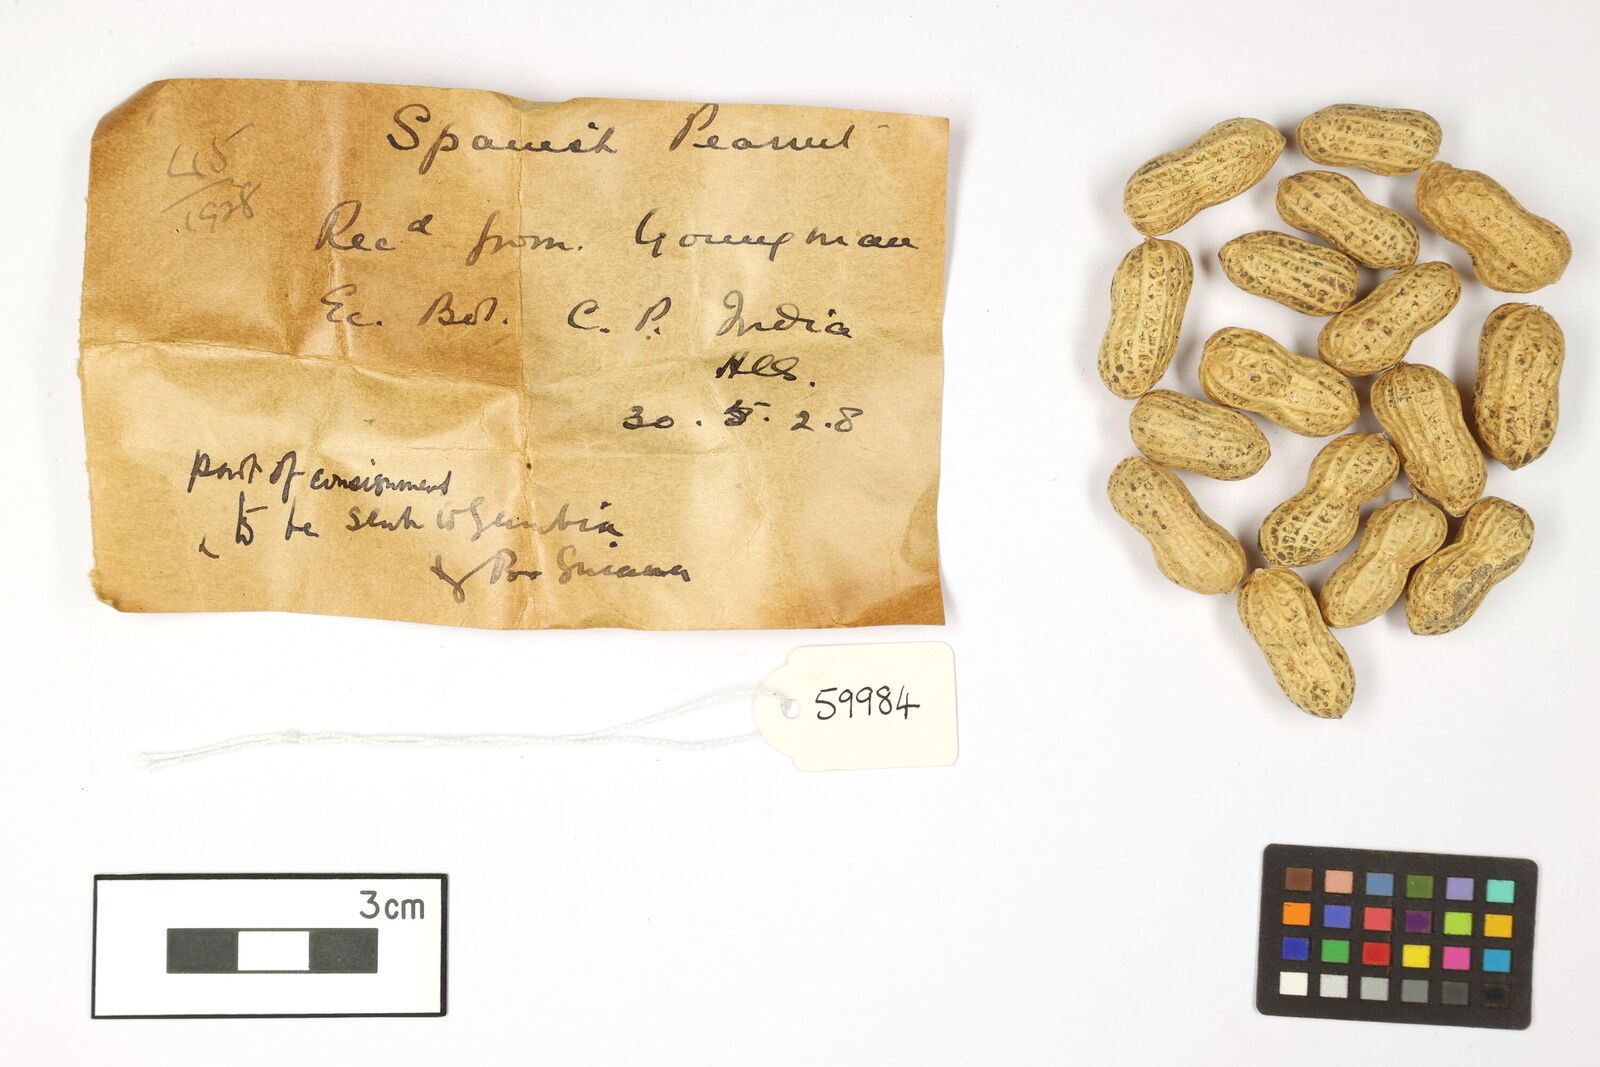 Spanish Peanut
45/1928
Rec^d from. Youngman
Ec. Bot. C. P. India
30. 5. 28
part of consignment
to be sent to Gambia
& Br Guiana
59984
3cm